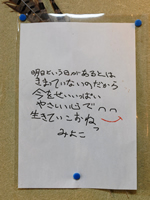 明日という日があるとは
きまっていないのだから
今をせいいっぱい
やさしい心で
生きていこおねっ
みよこ